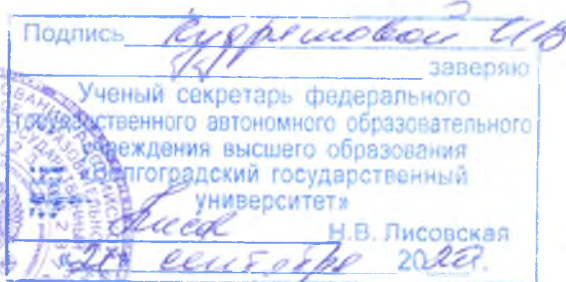 Подпись Кудряшовой И В
заверяю
Ученый секретарь федерального
государственного автономного образовательного
учреждения высшего образования
«Волгоградский государственный
университет»
Н.В. Лисовская
«21» сентября 2020г.